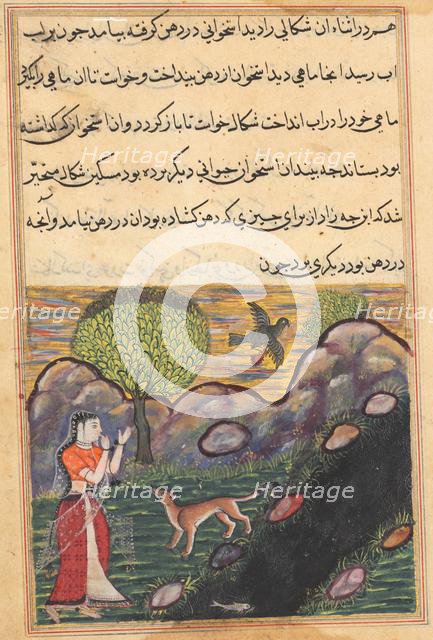 هم در اثناء ان شكالی را دید استخوانی در دهن كرفته بیامد چون بر لب
اب رسید انجا ماهی دید استخوان از دهن بینداخت و خواست تا ان ماهی را بكیرد
ماهی خود را در اب انداخت شكال خواست تا باز كردد و ان استخوان كه كذاشته
بود بستاند چه بیند ان استخوان حیوانی دیكر برده بود مسكین شكال متحیّر
شد كه این چه زاد از برای چیزی كه دهن كشاده بود ان در دهن نیامد و انچه
در دهن بود دیكری برد چون
Heritage
Heritage
Heritage
Heritage
Heritage
Heritage
Heritage